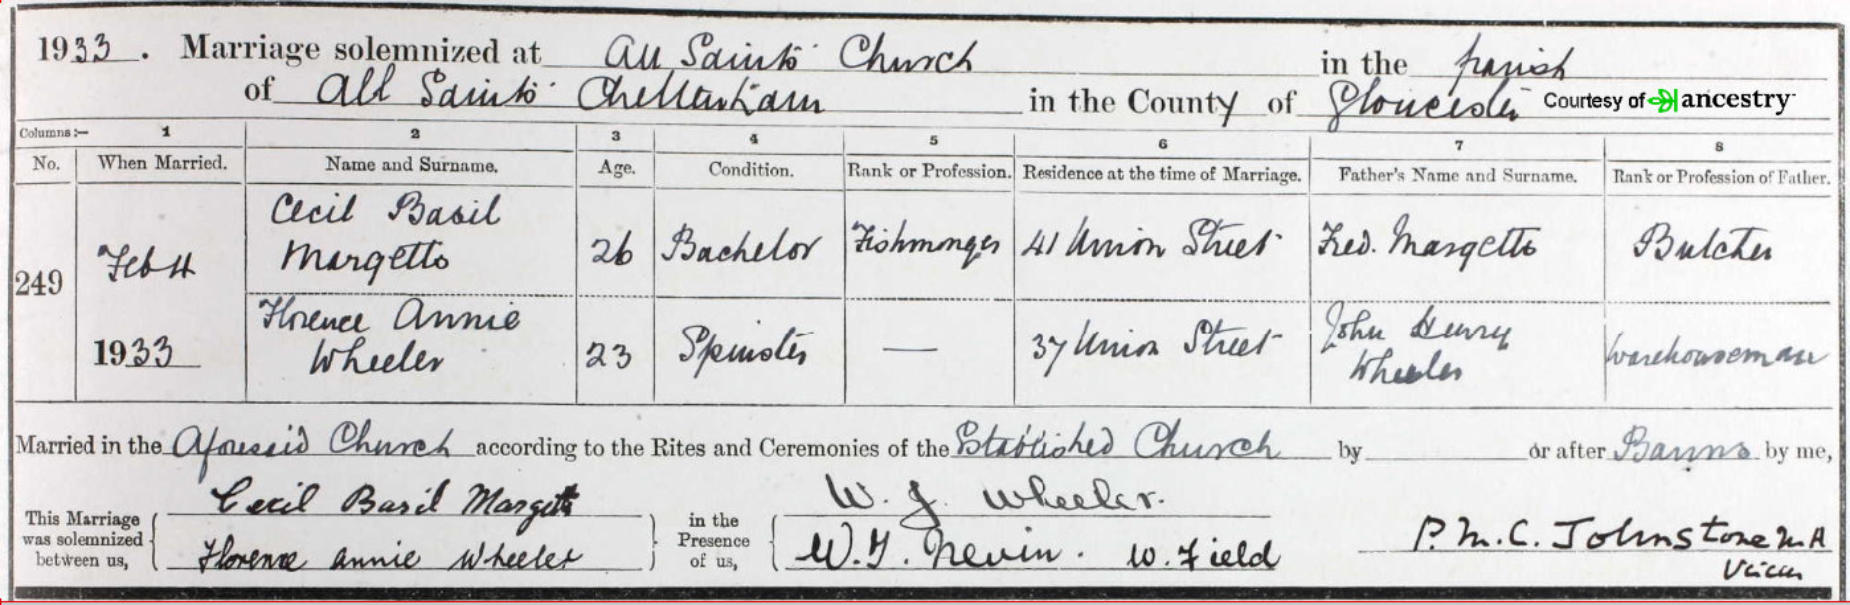 1933. Marriage solemnized at All Saints' Church in the parish
of All Saints' Cheltenham in the County of Gloucester Courtesy of ancestry
Columns:— 1 2 3 4 5 6 7 8
No. When Married. Name and Surname. Age. Condition. Rank or Profession. Residence at the time of Marriage. Father's Name and Surname. Rank or Profession of Father.
249 Feb 4 1933
Cecil Basil
Margetts 26 Bachelor Fishmonger 41 Union Street Fred. Margetts Butcher
Florence Annie
Wheeler 23 Spinster — 37 Union Street John Henry
Wheeler Warehouseman
Married in the Aforesaid Church according to the Rites and Ceremonies of the Established Church by or after Banns by me,
This Marriage
was solemnized
between us,
Cecil Basil Margetts
Florence Annie Wheeler
in the
Presence
of us,
W. J. Wheeler.
W. Nevin. W. Field
P. M. C. Johnstone M.A
Vicar